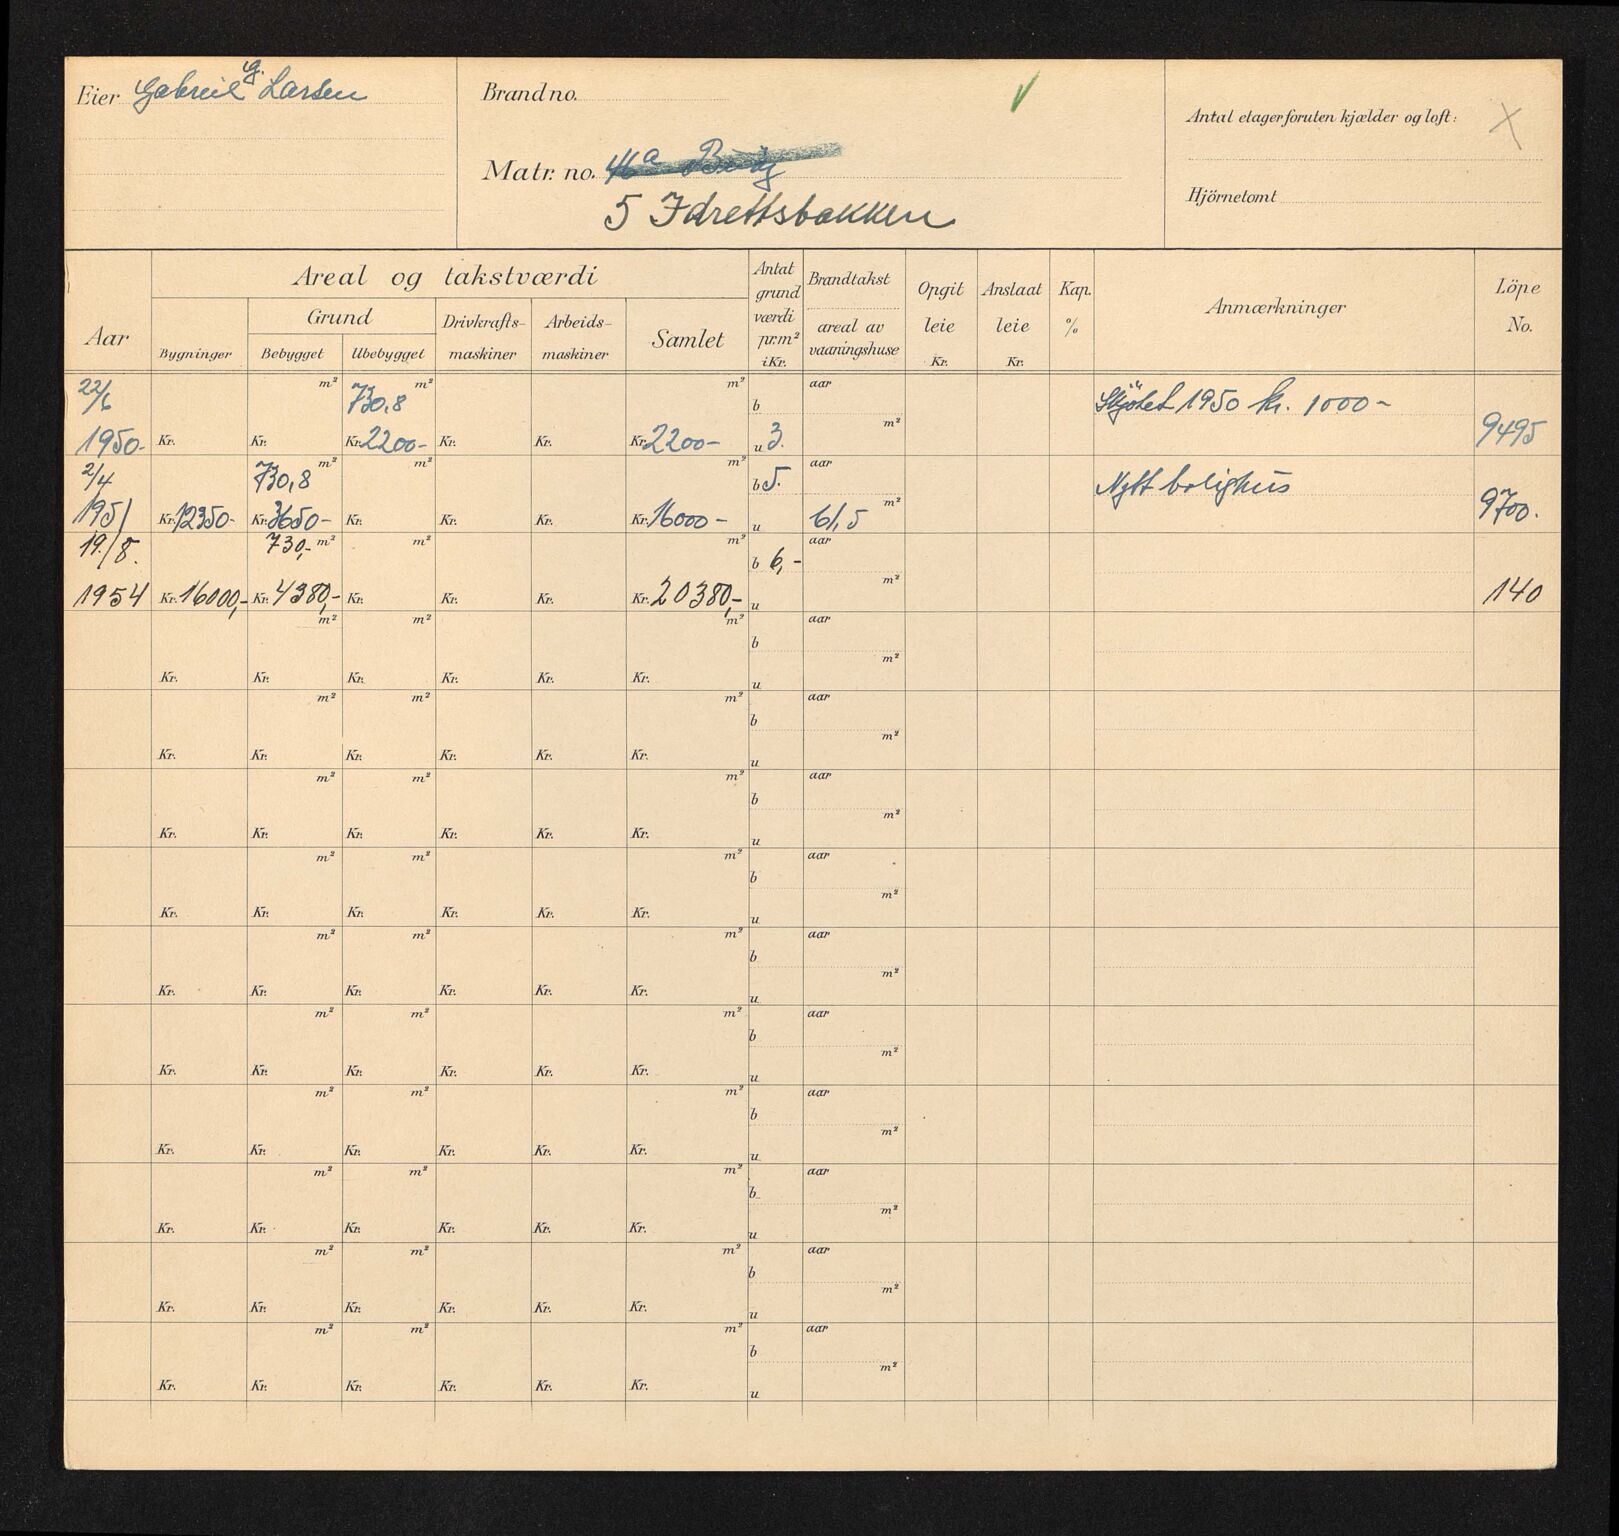 Eier Gabriel G. Larsen
Brand no.
Matr. no. 
5 Idrettsbakken
Antal etager foruten kjælder og loft: X
Hjörnetomt
Aar
Areal og takstværdi
Bygninger
Grund
Bebygget Ubebygget
Drivkrafts-
maskiner
Arbeids-
maskiner
Samlet
Antat
grund
værdi
pr. m²
i Kr.
Brandtakst
areal av
vaaningshuse
Opgit
leie
Kr.
Anslaat
leie
Kr.
Kap.
%
Anmærkninger
Löpe
No.
22/6 m² 730,8 m² m² b aar Skjötet 1950 kr. 1000-
1950- Kr. Kr. Kr. 2200- Kr. Kr. Kr. 2200- u 3. m² 9495
2/4 730,8 m² m² m² b 5. aar Nytt bolighus
1951 Kr. 12350- Kr. 3650- Kr. Kr. Kr. Kr. 16000- u 61,5 m² 9700.
19./8. 730,- m² m² m² b 6,- aar
1954 Kr. 16000,- Kr. 4380,- Kr. Kr. Kr. Kr. 20380,- u m² 140
m² m² m² b aar
Kr. Kr. Kr. Kr. Kr. Kr. u m²
m² m² m² b aar
Kr. Kr. Kr. Kr. Kr. Kr. u m²
m² m² m² b aar
Kr. Kr. Kr. Kr. Kr. Kr. u m²
m² m² m² b aar
Kr. Kr. Kr. Kr. Kr. Kr. u m²
m² m² m² b aar
Kr. Kr. Kr. Kr. Kr. Kr. u m²
m² m² m² b aar
Kr. Kr. Kr. Kr. Kr. Kr. u m²
m² m² m² b aar
Kr. Kr. Kr. Kr. Kr. Kr. u m²
m² m² m² b aar
Kr. Kr. Kr. Kr. Kr. Kr. u m²
m² m² m² b aar
Kr. Kr. Kr. Kr. Kr. Kr. u m²
m² m² m² b aar
Kr. Kr. Kr. Kr. Kr. Kr. u m²